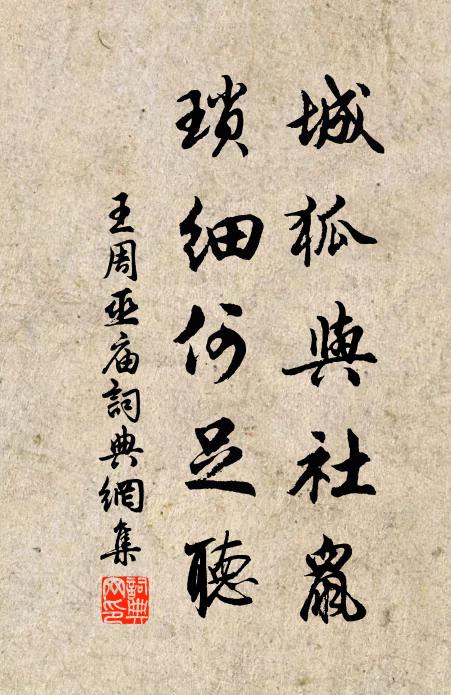 城狐與社鼠
瑣細何足聽
王周巫庙詞典網集
詞典网印